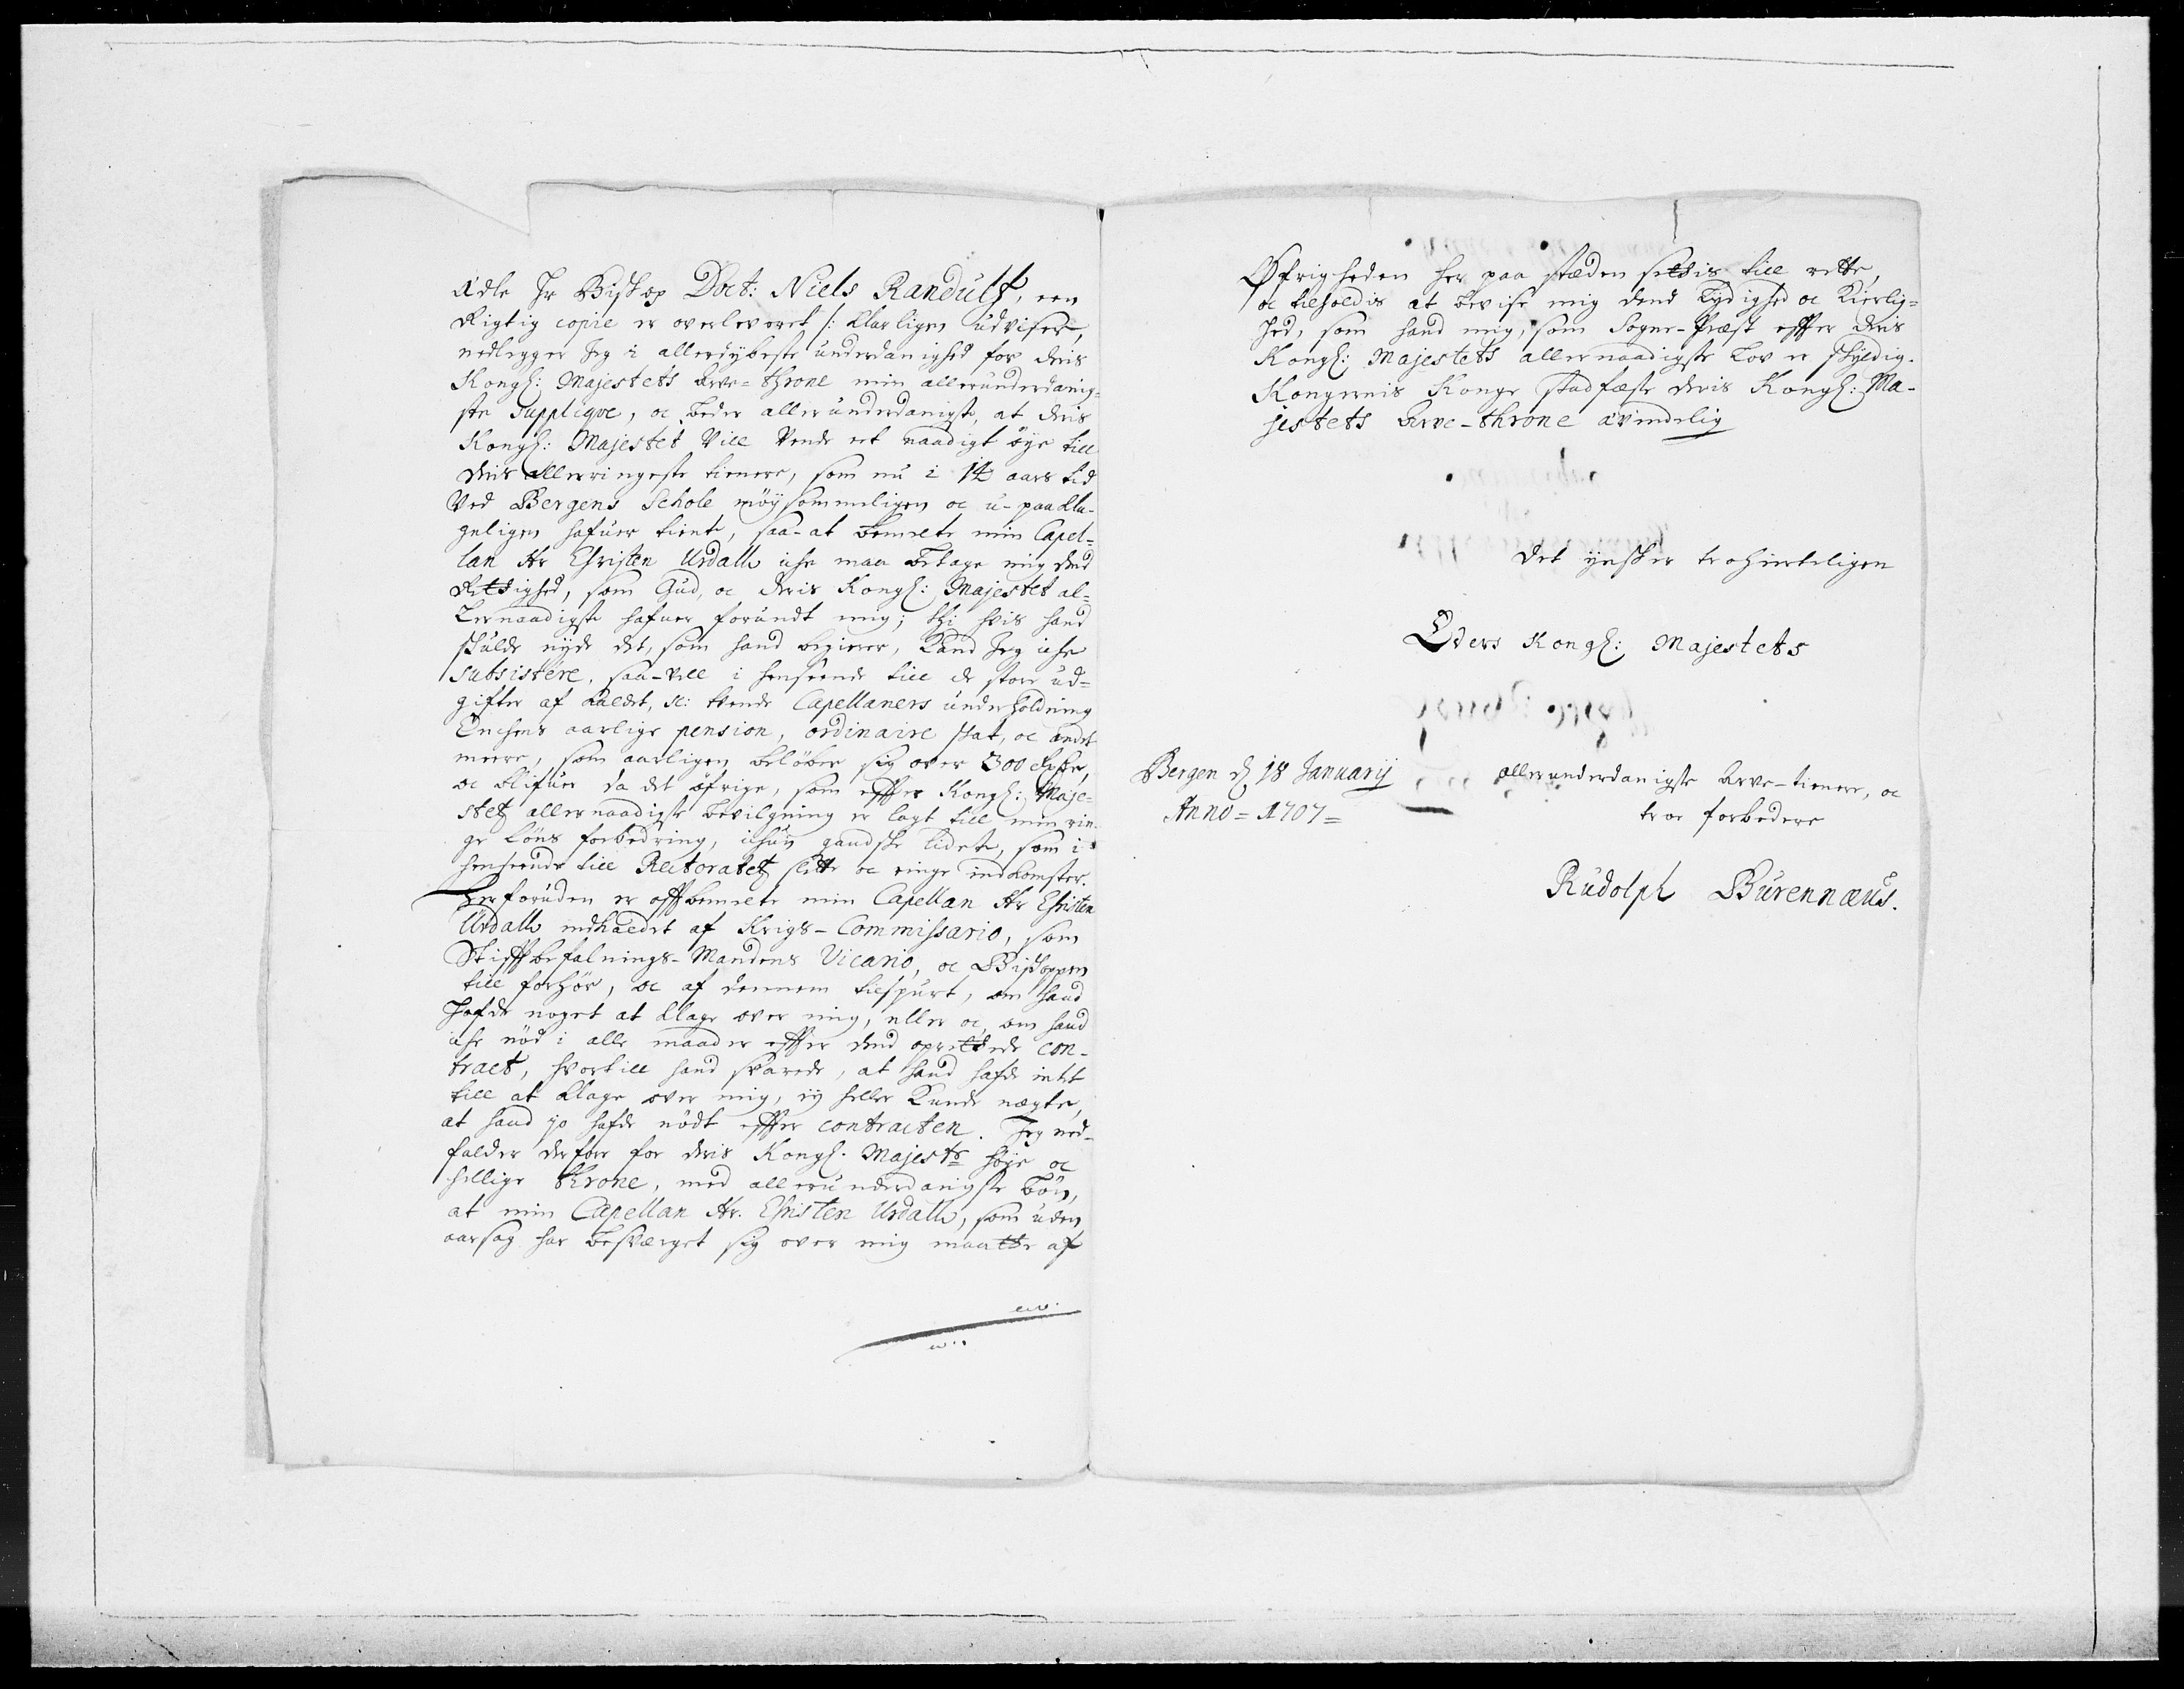 ædle Hr Biskop Doct: Niels Randulf, een
Rigtig copie er overleveret /: klarligen udviser,
nedlegger Jeg i allerdybeste underdanighed for deris
Kongl: Majestets Arve-throne min allerunderdanig-
ste Supplique, oc beder allerunderdanigst, at deris
Kongl: Majestet Vill Vende ett naadigt øye till
deris allerringeste tienere, som nu i 14 aars tid
Ved Bergens Schole møysommeligen oc u-paakla-
geligen hafuer tient, saa-at bemelte min Capel-
lan Hr Christen Urdall iche maa betage mig dend
Rettighed, som Gud, oc deris Kongl: Majestet al-
lernaadigst hafuer forundt mig; thi hvis hand
skulde nyde det, som hand begierer, kand Jeg iche
subsistere, saa-vell i henseende till de store ud-
gifter af kaldet, sc: tvende Capellaners underholdning
Enchens aarlige pension, ordinaire skat, oc andet
meere, som aarligen beløber sig over 300 Rdr,
oc blifuer da det øfrige, som effter Kongl: Maje-
stetz allernaadigste bevilgning er lagt till min rin-
ge løns forbedring, ichun gandske lidet, som i
henseende till Rectoratetz slette oc ringe indkomster.
Herforuden er offtbemelte min Capellan Hr Christen
Urdall indkaldet af Krigs-Commissario, som
Stifftbefalnings-Mandens Vicario, oc Bispen
till forhør, oc af dennem tilspurt, om hand
hafde noget at klage over mig, eller oc, om hand
iche nød i alle maader effter dend oprettede con-
tract, hvortill hand svarede, at hand hafde intet
till at klage over mig, ey heller kunde negte,
at hand jo hafde nødt effter contracten. Jeg ned-
falder derfore for deris Kongl. Majestz høye oc
hellige throne, med allerunderdanigste bøn,
at min Capellan Hr. Christen Urdall, som uden
aarsag har besverget sig over mig maatte af
Øfrigheden her paa stæden settis till rette,
oc tilholdis at bevise mig dend Lydighed oc Kierlig-
hed, som hand mig, som Sogne-Præst effter deris
Kongl: Majestets allernaadigste Lov er skyldig.
Kongernis Konge stadfæste deris Kongl: Ma-
jestets Arve-throne ævindelig
Det ynsker trohierteligen
Eders Kongl: Majestets
Bergen d 18 Januarij
Anno = 1707 =
allerunderdanigste Arve-tienere, oc
troe forbedere
Rudolph Burennæus.